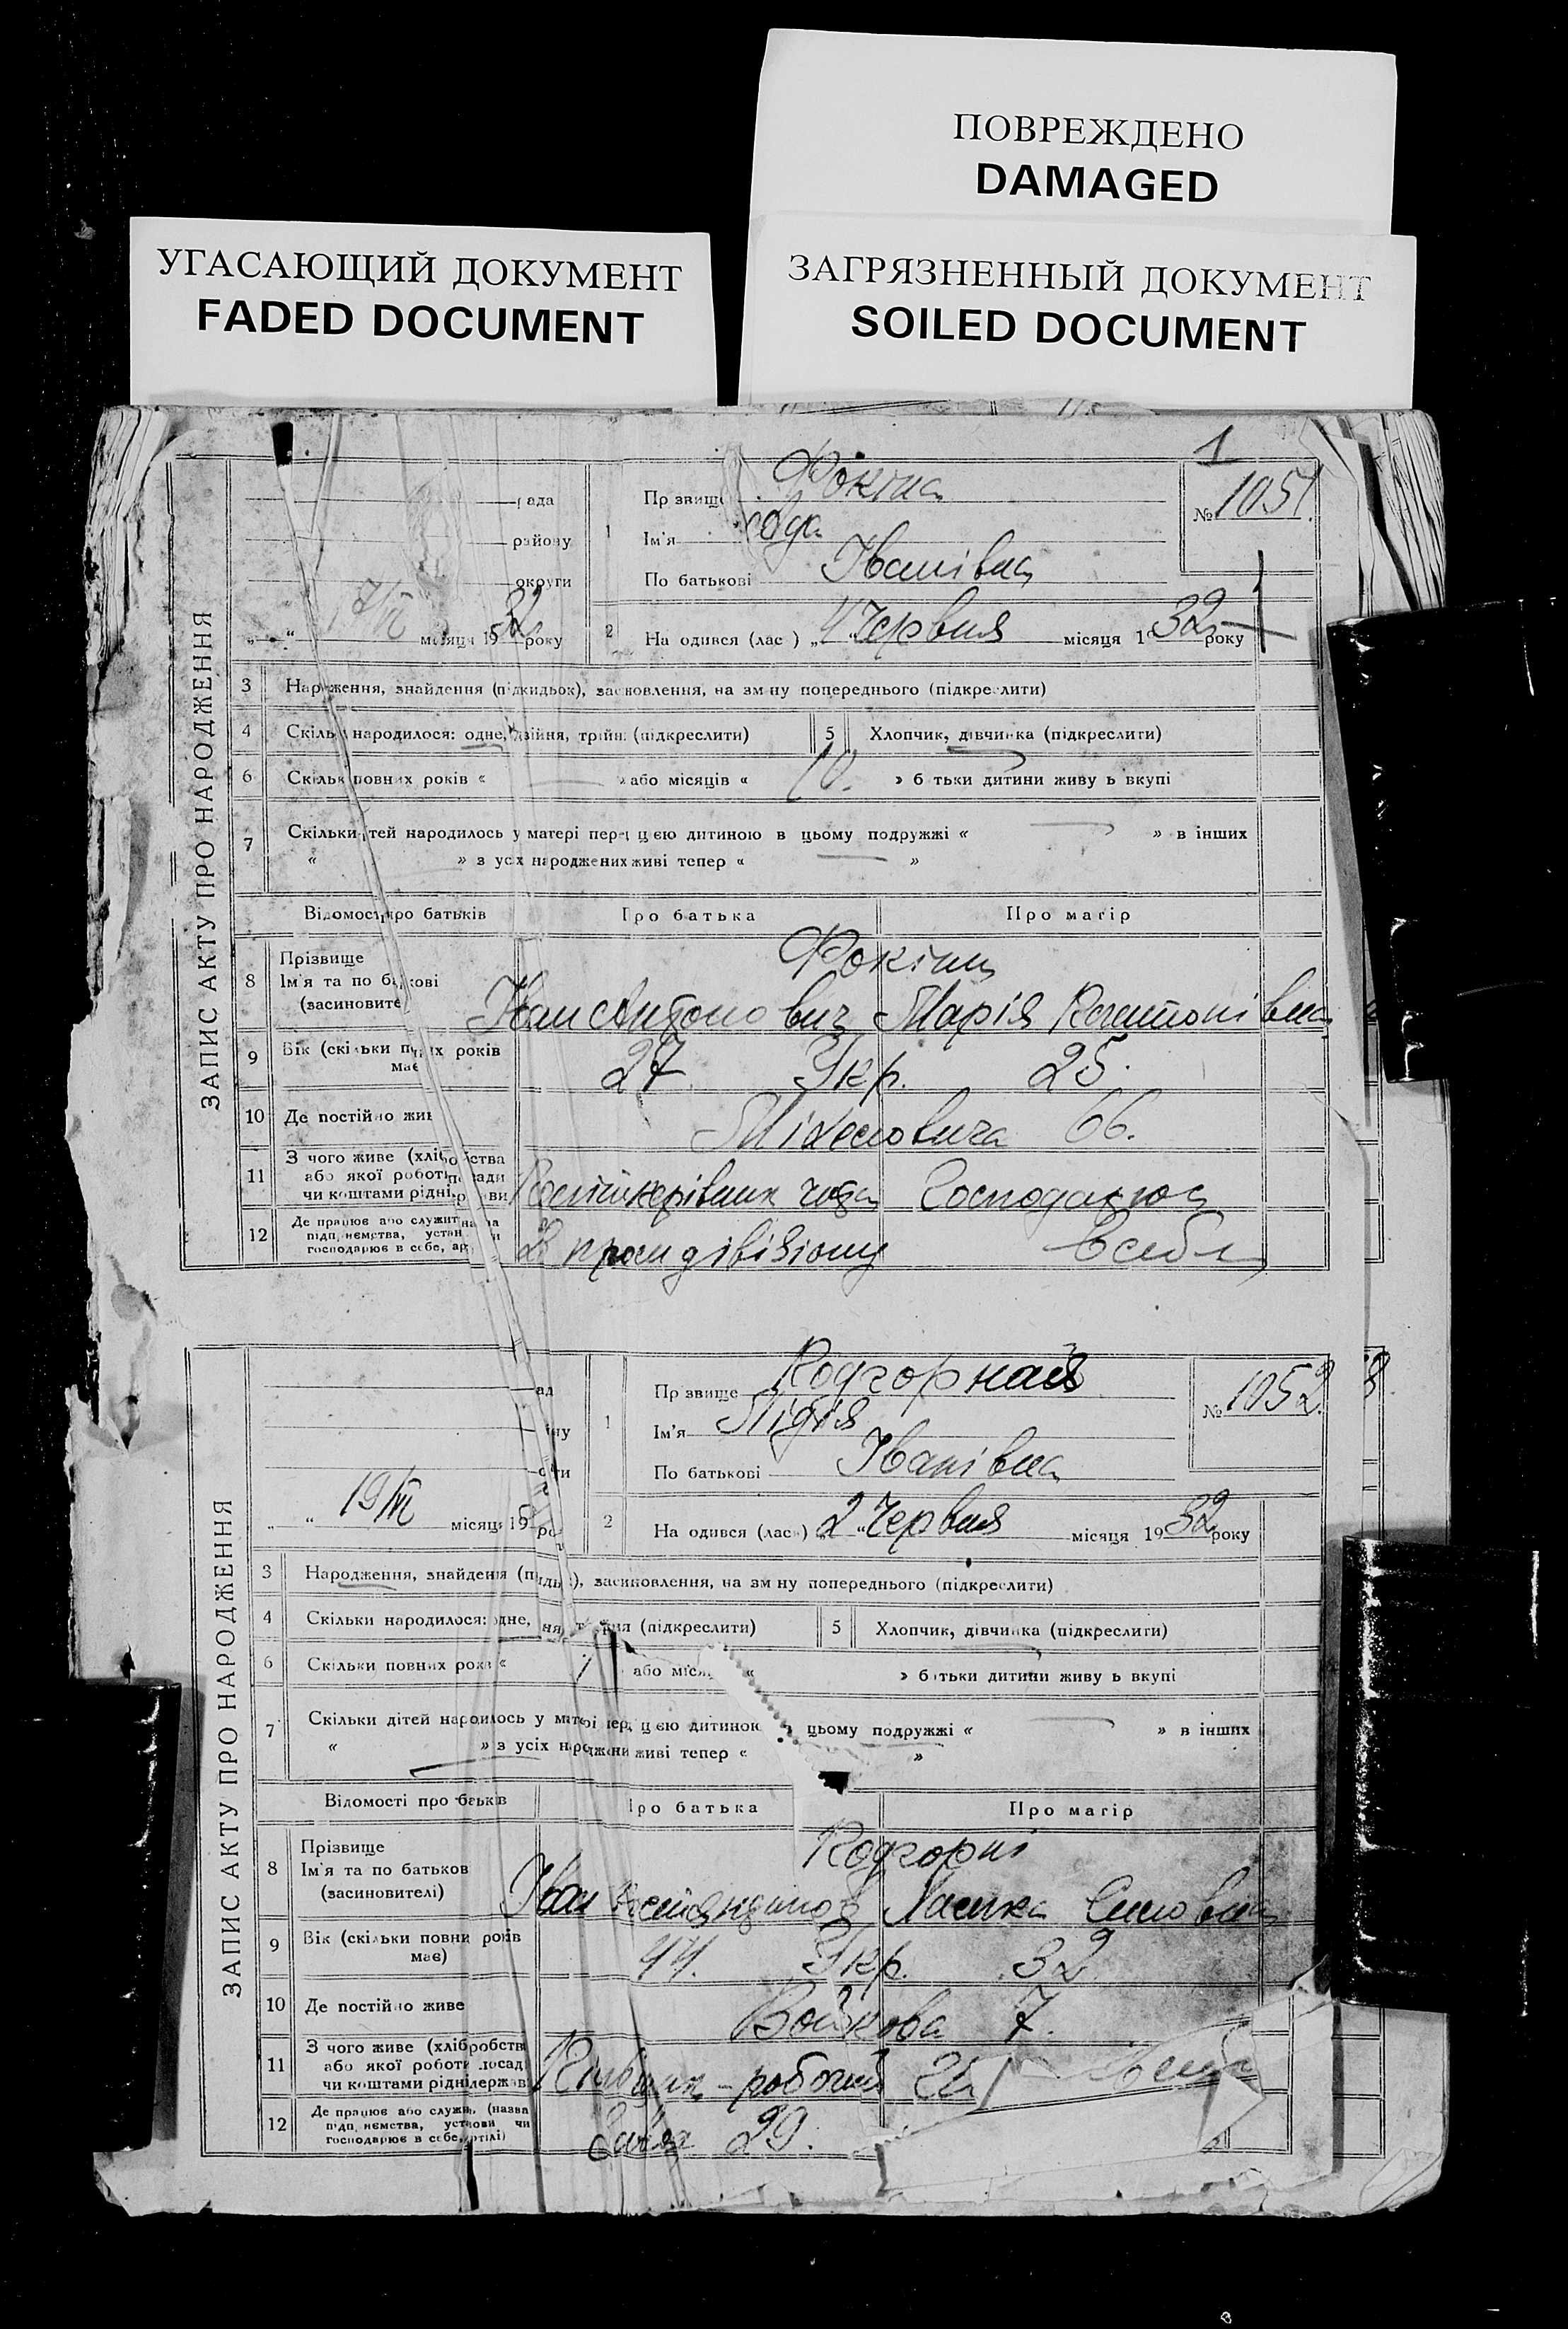 ПОВРЕЖДЕНО
DAMAGED
УГАСАЮЩИЙ ДОКУМЕНТ
FADED DOCUMENT
ЗАГРЯЗНЕННЫЙ ДОКУМЕНТ
SOILED DOCUMENT
1
ЗАПИС АКТУ ПРО НАРОДЖЕННЯ
ада
району
округи
17/VI місяця 1932 року
1
Пр звище Фокіна
Ім'я
По батькові Іванівна
№ 1051
2 На одився (лас ) „4" Червня місяця 1932 року
3 Народження, знайдення (підкидьок), засиновлення, на зм ну попереднього (підкреслити)
4 Скільки народилося: одне, двійня, трійня (підкреслити)
5 Хлопчик, дівчинка (підкреслити)
6 Скільки повних років « » або місяців « 10. » б тьки дитини живу ь вкупі
7 Скільки тей народилось у матері перед цією дитиною в цьому подружжі « » в інших
« » з усіх народжених живі тепер « »
Відомості про батьків Про батька Про матір
8 Прізвище
Ім'я та по батькові
(засиновите
Фокіни
Іван Антонович Марія
9 Вік (скільки повних років
має
27 Укр. 25.
10 Де постійно живе
66.
11 З чого живе (хліборобства
або якої роботи посади
чи коштами рідні держави
Господарює
12 Де працює або служить назва
підп, ємства, установи
господарює в себе, ар
в себе
ЗАПИС АКТУ ПРО НАРОДЖЕННЯ
ад
ну
ти
19/VI місяця 19 ро
1
Пр звище Подгорная
Ім'я Лідія
По батькові Іванівна
№ 1052.
2 На одився (лас ) „2" Червня місяця 1932 року
3 Народження, знайдення (п идьк), засиновлення, на зм ну попереднього (підкреслити)
4 Скільки народилося: одне, ня, трійня (підкреслити)
5 Хлопчик, дівчинка (підкреслити)
6 Скільки повних років « 1 або місяц « » батьки дитини живу ь вкупі
7 Скільки дітей народилось у матері перед цією дитиною в цьому подружжі « » в інших
« » з усіх народжени живі тепер « »
Відомості про батьків Про батька Про матір
8 Прізвище
Ім'я та по батьков
(засиновителі)
Подгорні
Іван
9 Вік (скільки повни років
має)
44. Укр. 32
10 Де постійно живе
Войкова 7.
11 З чого живе (хліборобств
або якої роботи посад
чи коштами рідні держав
робочий
12 Де працює або служи. (назва
підп, ємства, установи чи
господарює в себе, артілі)
29.